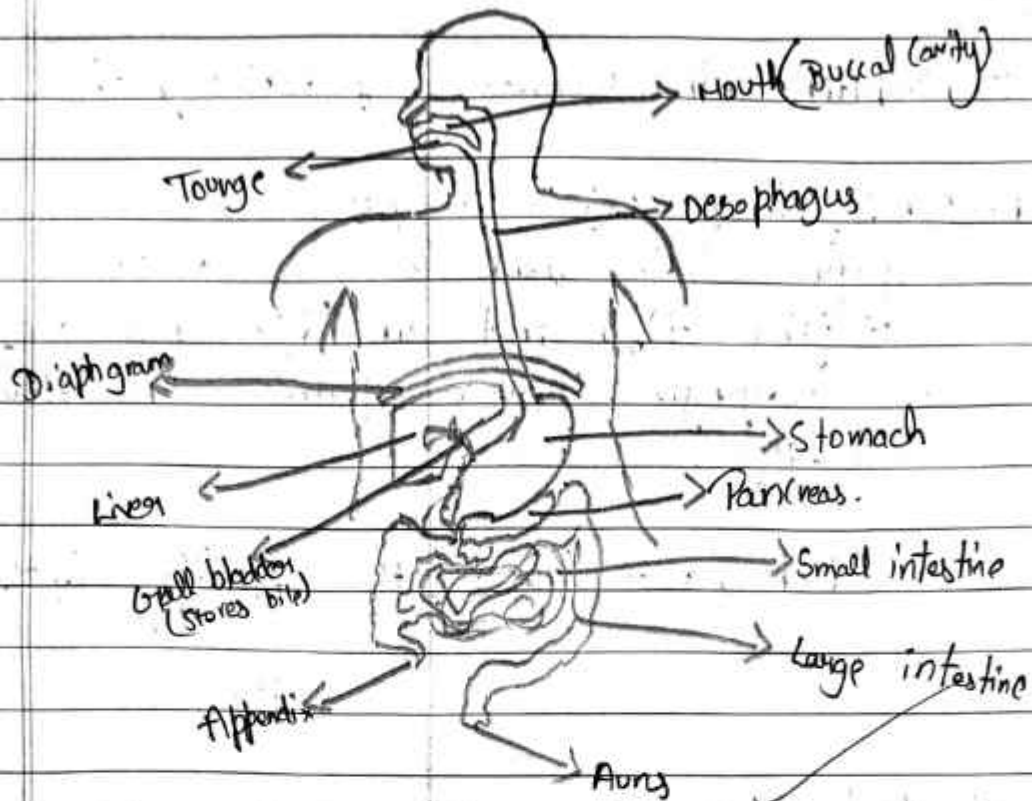 Mouth (Buccal Cavity)
Tounge
Oesophagus
Diaphgram
Stomach
Liver
Pancreas.
Gall bladder
(stores bile)
Small intestine
Large intestine
Appendix
Auns